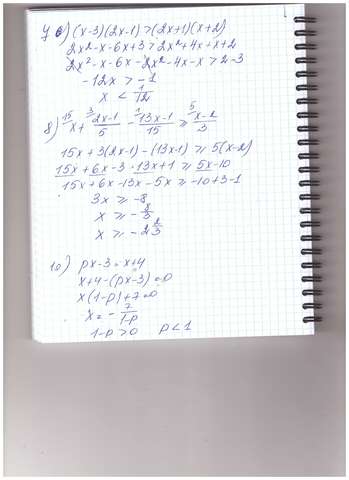 7 в) (x-3)(2x-1)>(2x+1)(x+2)
2x²-x-6x+3>2x²+4x+x+2
2x²-x-6x-2x²-4x-x>2-3
-12x>-1
x<1/12
8) ¹⁵x+ ³(2x-1)/5 - ¹(13x-1)/15 ≥ ⁵(x-2)/3
15x+3(2x-1)-(13x-1)≥5(x-2)
15x+6x-3-13x+1≥5x-10
15x+6x-13x-5x≥-10+3-1
3x≥-8
x≥-8/3
x≥-2 2/3
10) px-3=x+4
x+4-(px-3)=0
x(1-p)+7=0
x=-7/(1-p)
1-p>0 p<1